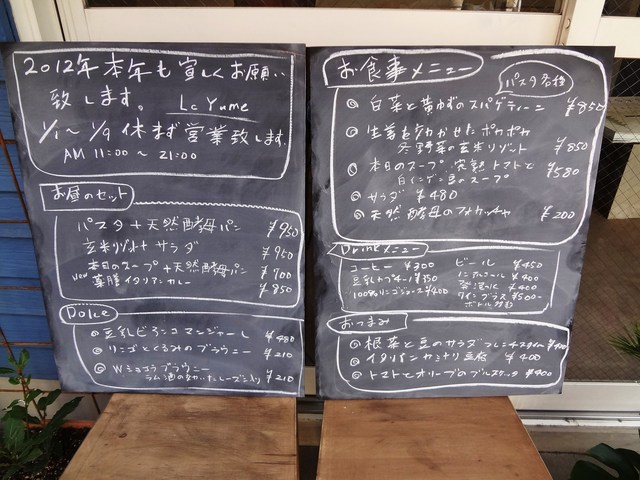 2012年 本年も宜しくお願い
致します。 Le Yume
1/1～1/9 休まず営業致します
AM 11:00～21:00
お昼のセット
パスタ+天然酵母パン ¥950
玄米リゾット+サラダ ¥950
本日のスープ+天然酵母パン ¥700
New 薬膳イタリアンカレー ¥850
Dolce
豆乳どら ¥480
リンゴとくるみのブラウニー ¥210
Wショコラブラウニー
ラム酒の効いたレーズン入り ¥210
お食事メニュー
パスタ各種
白菜と黄ゆずのスパゲティーニ ¥850
生姜をきかせたポカポカ
冬野菜の玄米リゾット ¥850
本日のスープ 完熟トマトと
白インゲン豆のスープ ¥580
サラダ ¥480
天然酵母のフォカッチャ ¥200
Drinkメニュー
コーヒー ¥300
豆乳カプチーノ ¥350
100%リンゴジュース ¥400
ビール ¥450
ノンアルコール ¥400
¥400
ワイン グラス ¥500~
ボトル
おつまみ
根菜と豆のサラダ フレンチスタイル ¥400
イタリアン 豆腐 ¥400
トマトとオリーブのブルスケッタ ¥400